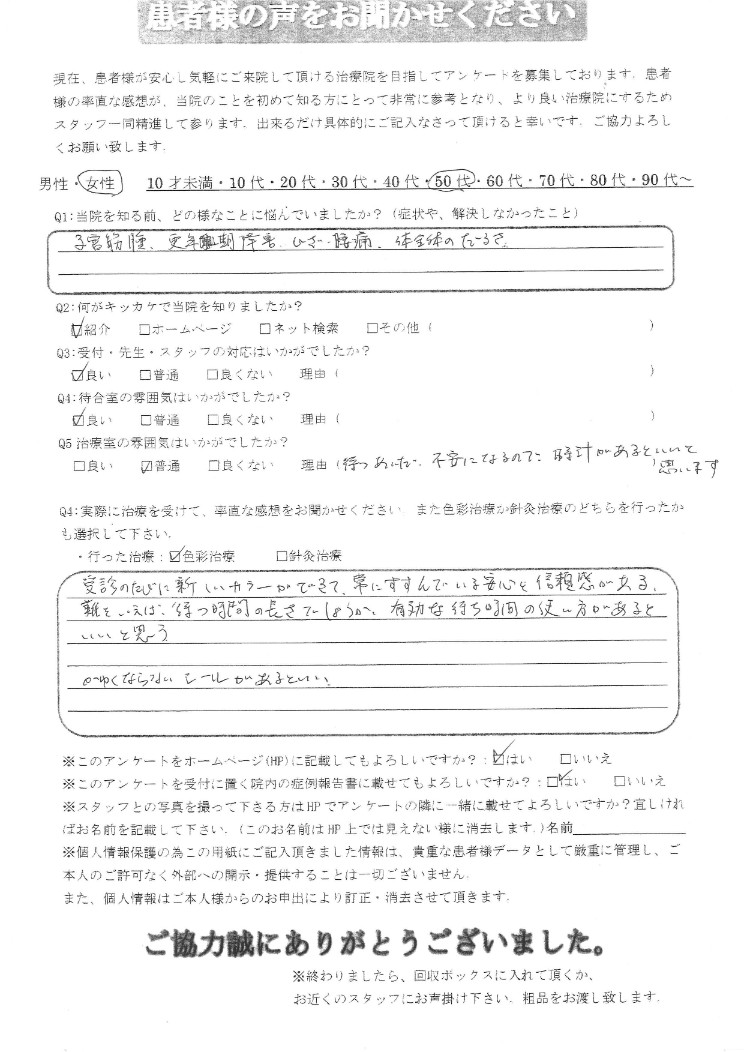 患者様の声をお聞かせください
現在、患者様が安心し気軽にご来院して頂ける治療院を目指してアンケートを募集しております。患者
様の率直な感想が、当院のことを初めて知る方にとって非常に参考となり、より良い治療院にするため
スタッフ一同精進して参ります。出来るだけ具体的にご記入なさって頂けると幸いです。ご協力よろし
くお願い致します。
男性・女性 10才未満・10代・20代・30代・40代・50代・60代・70代・80代・90代～
Q1:当院を知る前、どの様なことに悩んでいましたか？(症状や、解決しなかったこと)
子宮筋腫、更年期障害、ひざ・腰痛、体全体のだるさ。
Q2:何がキッカケで当院を知りましたか？
☑紹介 □ホームページ □ネット検索 □その他( )
Q3:受付・先生・スタッフの対応はいかがでしたか？
☑良い □普通 □良くない 理由( )
Q4:待合室の雰囲気はいかがでしたか？
☑良い □普通 □良くない 理由( )
Q5治療室の雰囲気はいかがでしたか？
□良い ☑普通 □良くない 理由(待つあいだ、不安になるので、時計があるといいと
思います)
Q4:実際に治療を受けて、率直な感想をお聞かせください。また色彩治療か針灸治療のどちらを行ったか
も選択して下さい。
・行った治療:☑色彩治療 □針灸治療
受診のたびに新しいカラーができて、常にすすんでいる安心と信頼感がある。
難をいえば、待つ時間の長さでしょうか、有効な待ち時間の使い方があると
いいと思う
かゆくならないシールがあるといい。
※このアンケートをホームページ(HP)に記載してもよろしいですか？:☑はい □いいえ
※このアンケートを受付に置く院内の症例報告書に載せてもよろしいですか？:☑はい □いいえ
※スタッフとの写真を撮って下さる方はHPでアンケートの隣に一緒に載せてよろしいですか？宜しけれ
ばお名前を記載して下さい。(このお名前はHP上では見えない様に消去します。)名前
※個人情報保護の為この用紙にご記入頂きました情報は、貴重な患者様データとして厳重に管理し、ご
本人のご許可なく外部への開示・提供することは一切ございません。
また、個人情報はご本人様からのお申出により訂正・消去させて頂きます。
ご協力誠にありがとうございました。
※終わりましたら、回収ボックスに入れて頂くか、
お近くのスタッフにお声掛け下さい。粗品をお渡し致します。